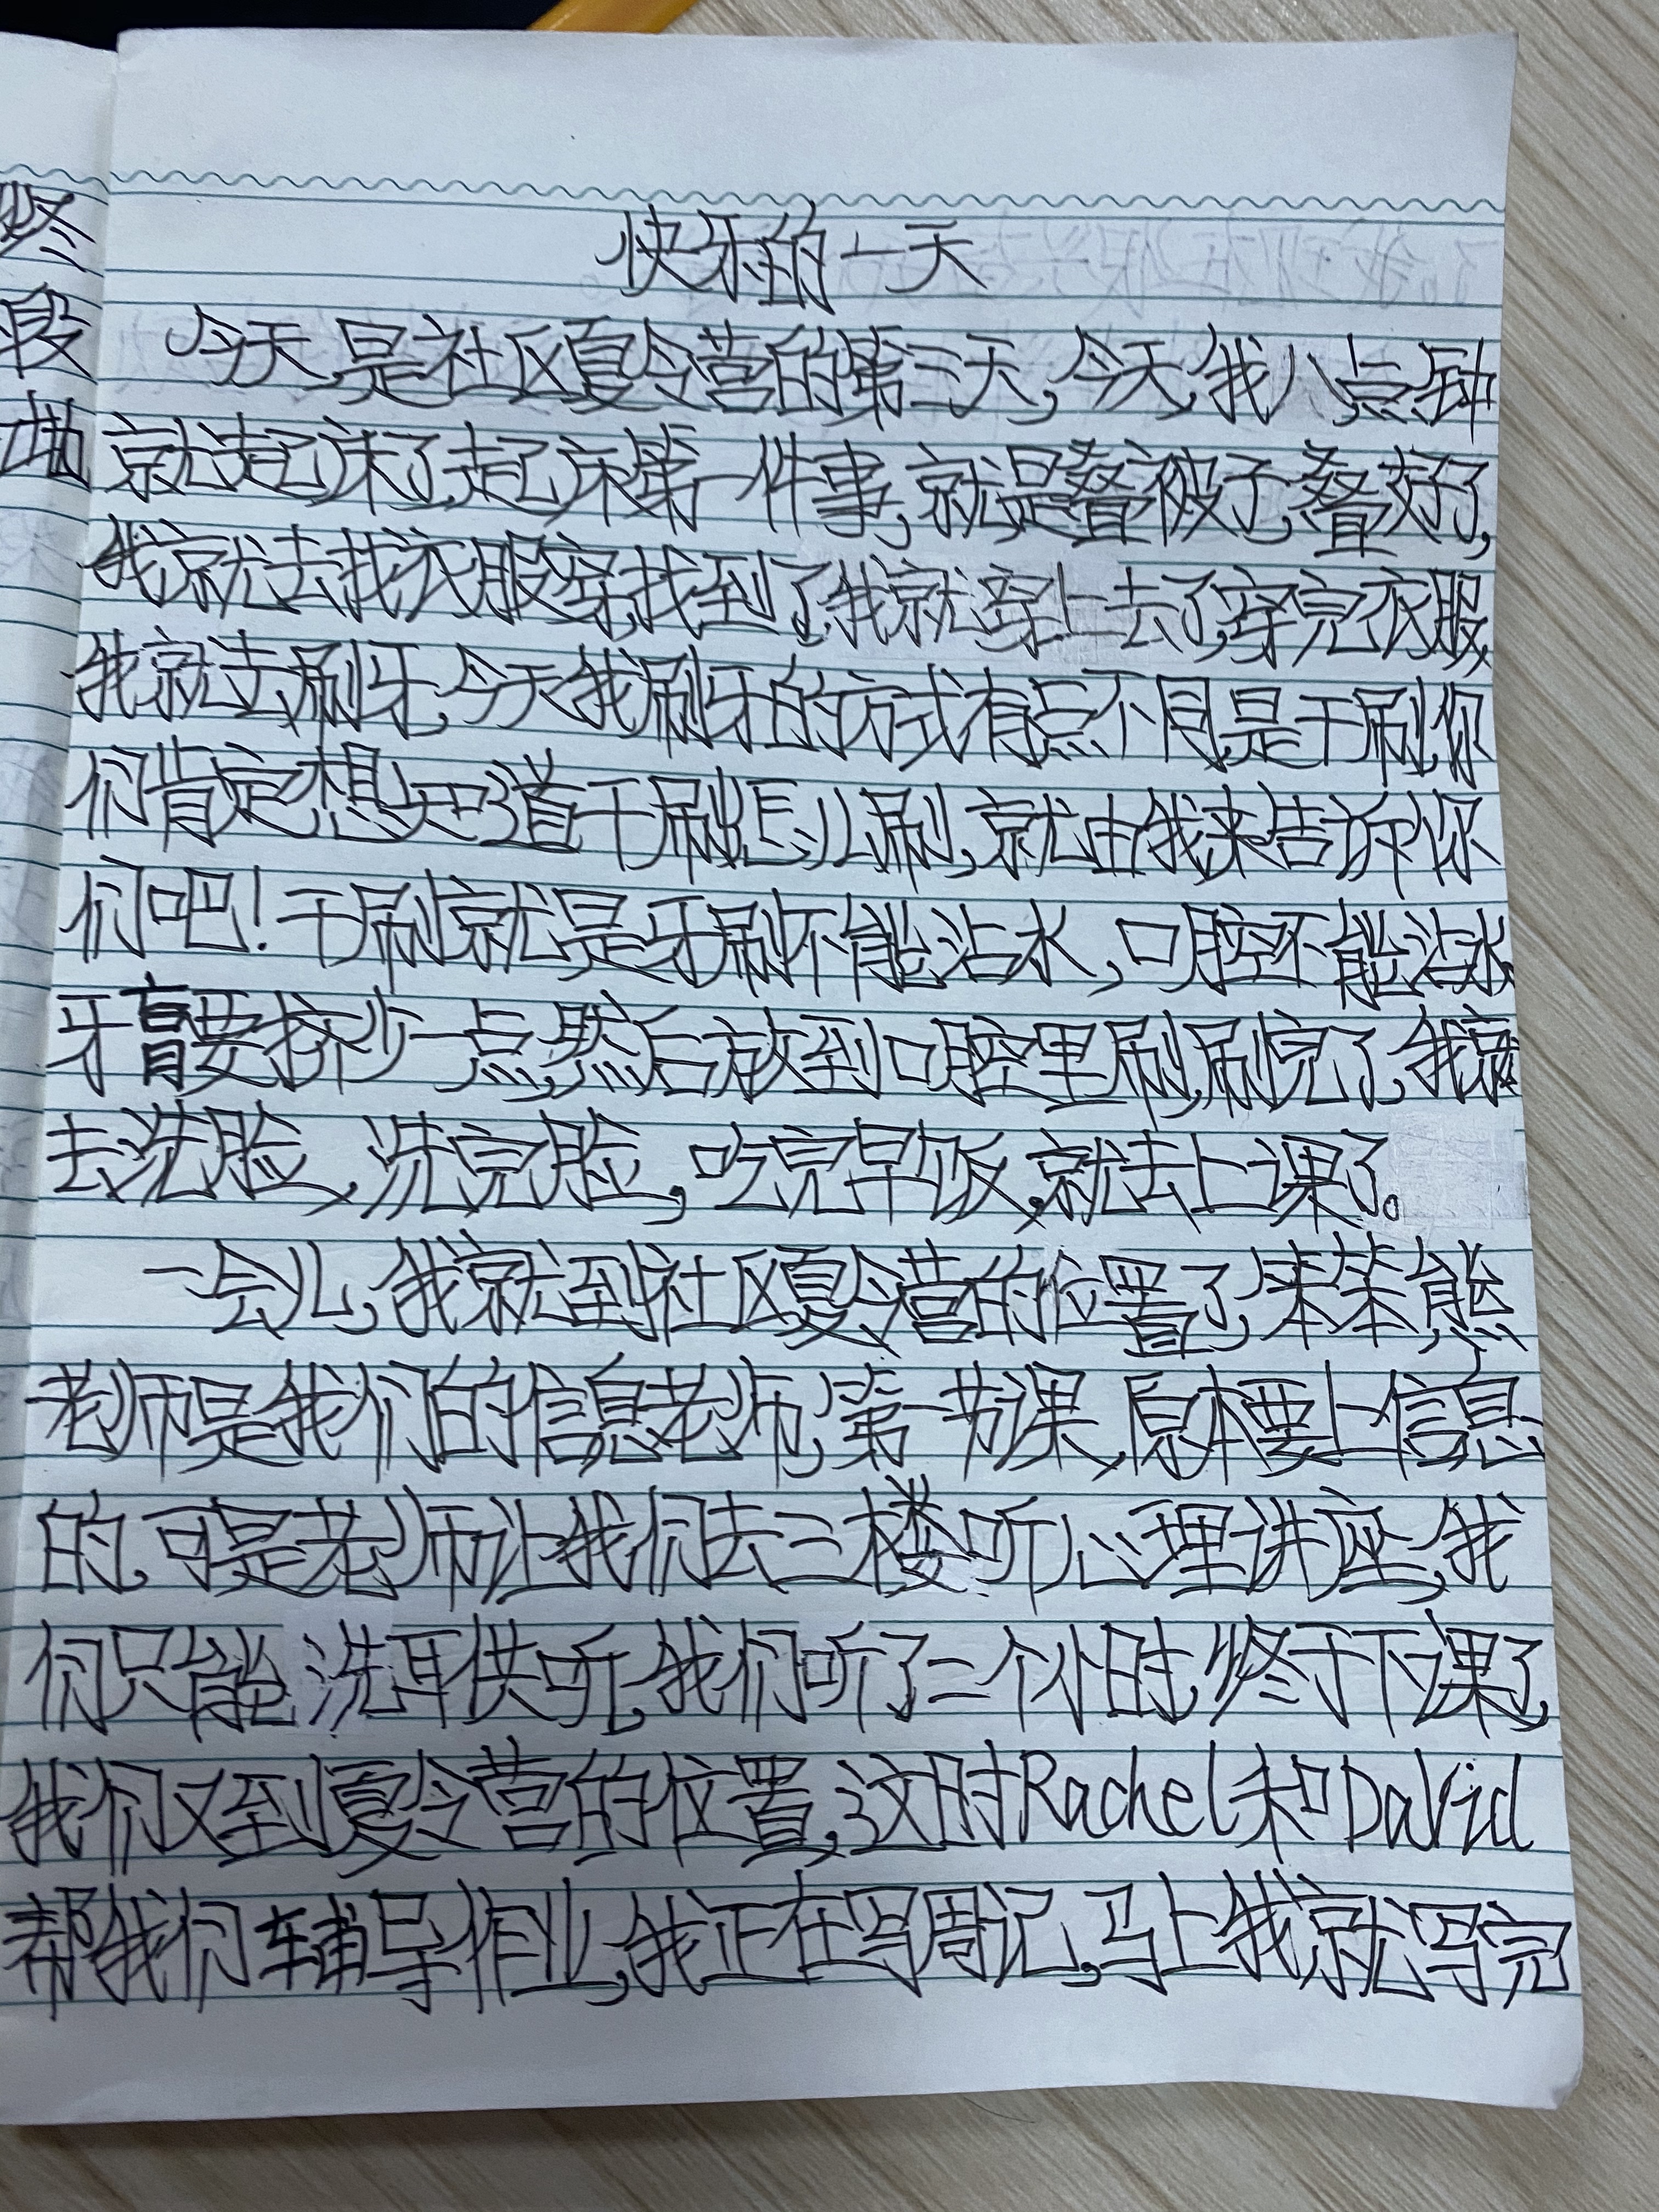 快乐的一天
今天,是社区夏令营的第三天,今天,我八点钟
就起床了,起床第一件事,就是叠被子,叠好了,
我就去找衣服穿,找到了,我就穿上去了,穿完衣服,
我就去刷牙,今天我刷牙的方式有点不同,是干刷,你
们肯定想知道干刷怎么刷,就由我来告诉你
们吧!干刷就是牙刷不能沾水,口腔不能沾水,
牙膏要挤少一点,然后放到口腔里刷,刷完了,我就
去洗脸,洗完脸,吃完早饭,就去上课了。
一会儿,我就到社区夏令营的位置了,笨笨熊
老师是我们的信息老师,第一节课,原本要上信息
的,可是老师让我们去三楼听心理讲座,我
们只能洗耳供听,我们听了二个小时,终于下课了,
我们又到夏令营的位置,这时Rachel和David
帮我们辅导作业,我正在写周记,马上我就写完
终
段